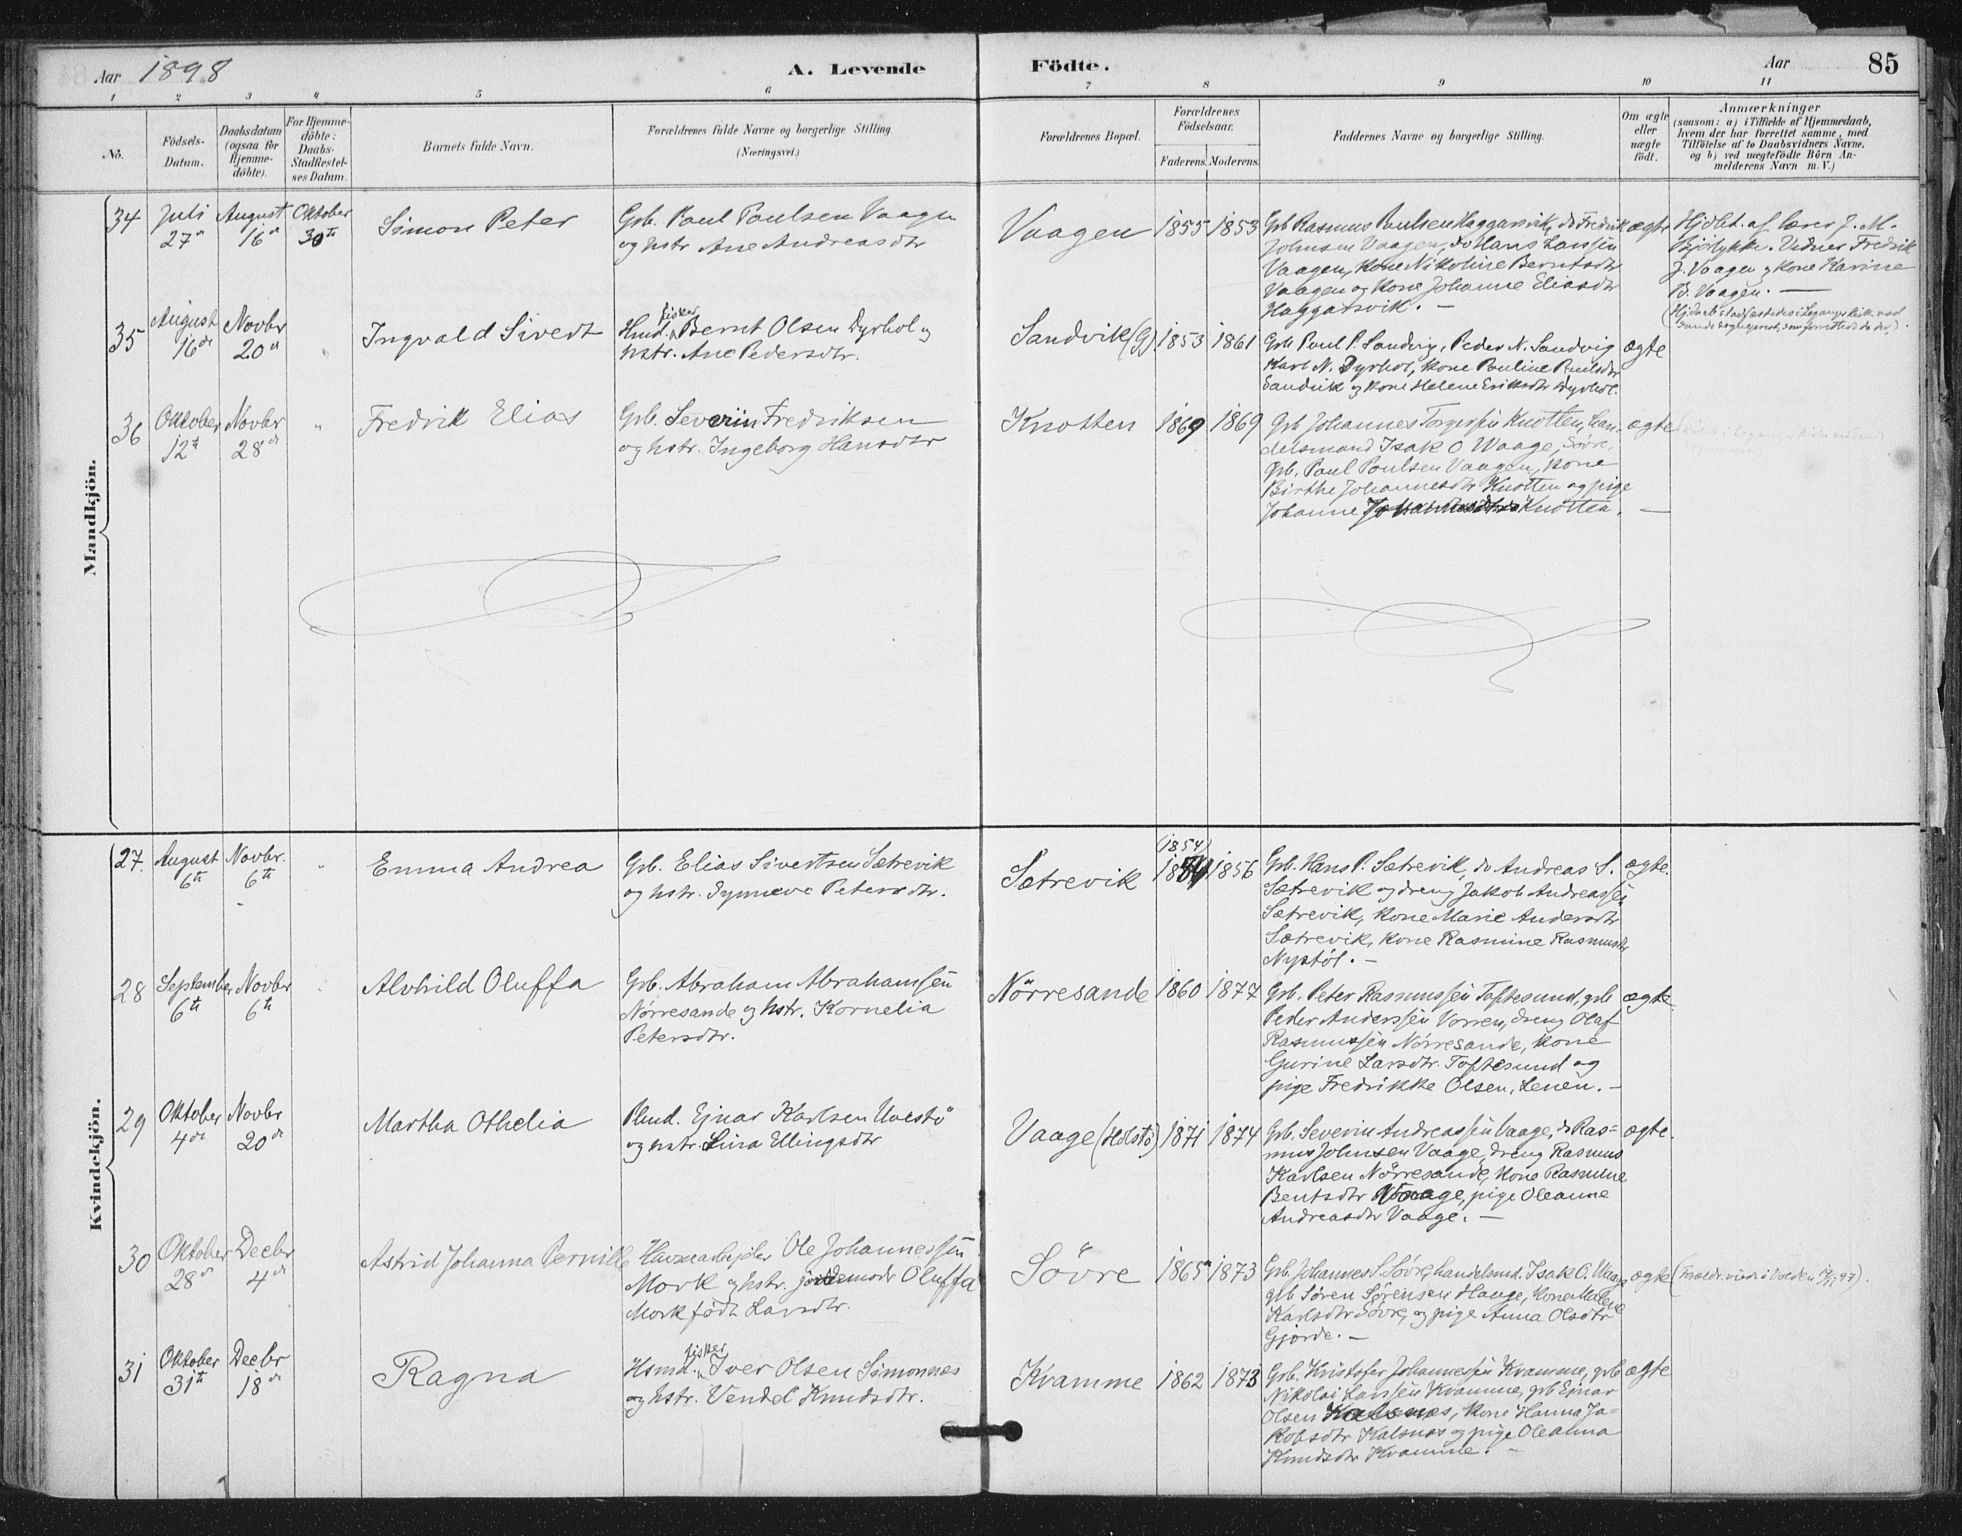 Aar 1898
A. Levende
Födte.
Aar
85
1 2 3 4 5 6 7 8 9 10 11
No.
Födsels-
Datum.
Daabsdatum
(ogsaa for
Hjemme-
döbte).
For Hjemme-
döbte:
Daabs-
Stadfæstel-
ses Datum.
Barnets fulde Navn.
Forældrenes fulde Navne og borgerlige Stilling.
(Næringsvei.)
Forældrenes Bopæl.
Forældrenes
Födselsaar.
Faderens. Moderens.
Faddernes Navne og borgerlige Stilling.
Om ægte
eller
uægte
födt.
Anmærkninger
(saasom: a) i Tilfælde af Hjemmedaab,
hvem der har forrettet samme, med
Tilföielse af to Daabsvidners Navne,
og b) ved uægtefödte Börn An-
melderens Navn m. V.)
Mandkjön.
34
Juli
27
August
16
Oktober
30te
Simon Peter
Grb. Paul Paulsen Vaagen
og hstr Ane Andreasdtr
Vaagen
1855
1853
Grb Rasmus Paulsen Haggarsvik, do Fredrik
Johnsen Vaagen, do Hans Larssen
Vaagen, kone Nikoline Berntsdtr
Vaagen og kone Johanne Eliasdtr
Haggarsvik. —
ægte
Hjdbt. af lærer J. M.
Bjørlykke. Vidner Fredrik
J. Vaagen og kone Karine
B. Vaagen. —
35
August
16de
Novbr
20de
Ingvald Sivert
Hmd. fisker Bernt Olsen Dyrhol og
hstr. Ane Pedersdtr.
Sandvik (G)
1853
1861
Grb Paul P. Sandvig, Peder N. Sandvig
Karl N. Dyrhol, kone Pauline Paulsdtr
Sandvik og kone Helene Eriksdtr Dyrhol.
ægte
36
Oktober
12te
Novbr
28de
Fredrik Elias
Grb. Severin Fredriksen
og hstr. Ingeborg Hansdtr
Knotten
1869
1869
Grb Johannes Torgersen Knotten, han-
delsmand Isak O Waage, Søvre,
Grb. Paul Poulsen Vaagen, kone
Birthe Johannesdtr Knotten og pige
Johanne Johannesdtr Knotten. —
ægte
Kvindekjön.
27.
August
6te
Novbr.
6te
Emma Andrea
Grb. Elias Sivertsen Sætrevik
og hstr. Synneve Petersdtr.
Sætrevik
(1854)
1856
Grb. Hans P. Sætrevik, do Andreas S.
Sætrevik og dreng Jakob Andreassen
Sætrevik, kone Marie Andersdtr
Sætrevik, kone Rasmine Rasmusdtr
Nystøl. —
ægte.
28
September
6te
Novbr
6te
Alvhild Oluffa
Grb. Abraham Abrahamsen
Nörresande og hstr. Kornelia
Petersdtr.
Nörresande
1860
1877
Grb. Peter Rasmussen Toftesund, grb
Peder Anderssen Vorren, dreng Olaf
Rasmussen Nörresande, kone
Gurine Larsdtr. Toftesund og
pige Fredrikke Olsen, Lenen. —
ægte
29
Oktober
4de
Novbr
20de
Martha Othelia
Ejnar Karlsen
og hstr. Lina Ellingsdtr
Vaage (Holstö)
1871
1874
Grb. Severin Andreassen Vaage, do Ras-
mus Johnsen Vaage, dreng Rasmus
Karlsen Nörresande, kone Rasmine
Bentsdtr Vaage, pige Oleanne
Andreasdtr Vaage. —
ægte.
30
Oktober
28
Decbr
4de
Astrid Johanna Pernille
Havnearbejder Ole Johannessen
Mork og hstr. jordemoder Oluffa
Mork født Larsdtr.
Sövre
1865
1873
Grb. Johannes S. Søvre, handelsmd. Isak O. Waage
grb Søren Sørensen Hauge, kone Malene
Karlsdtr Søvre, og pige Anna Olsdtr
Gjørde. —
ægte
31
Oktober
31te
Decbr
18de
Ragna
Hsmd. fisker Iver Olsen Simonnes
og hstr. Vendel Knudsdtr.
Kvamme
1862
1873
Grb. Kristofer Johannessen Kvamme, grb
Nikolai Larssen Kvamme, grb Ejnar
Olsen Kalsnes, kone Hanna Ja-
kobsdtr Kalsnes og pige Oleanna
Knudsdtr Kvamme. —
ægte